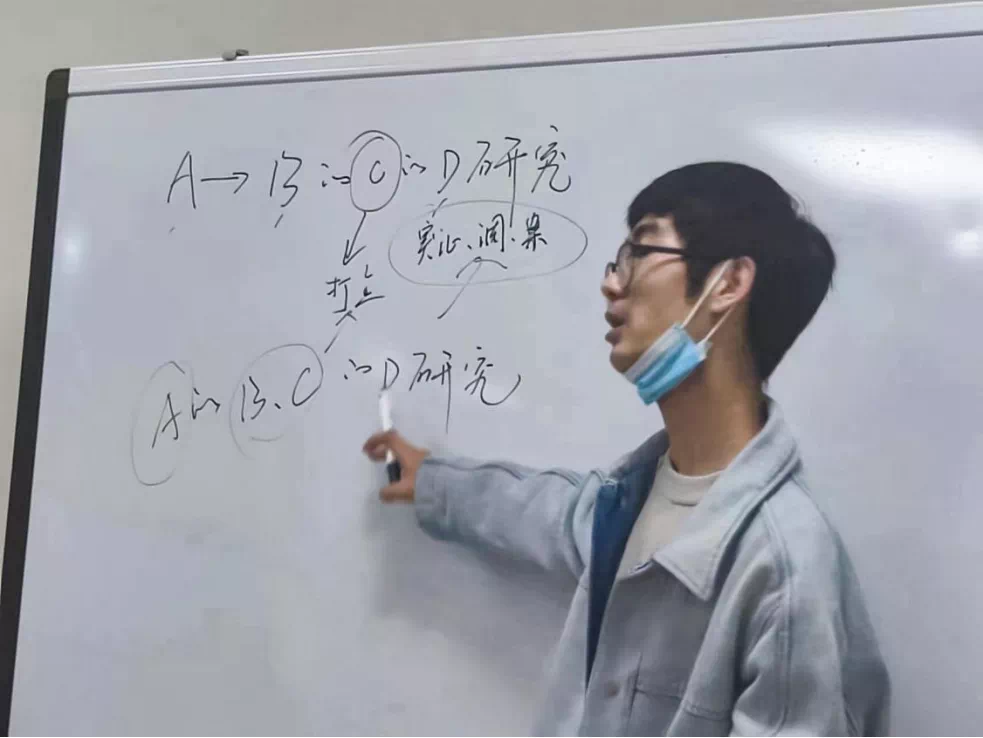 A→B的C的D研究
实证、调、案
打点
A的B、C的D研究